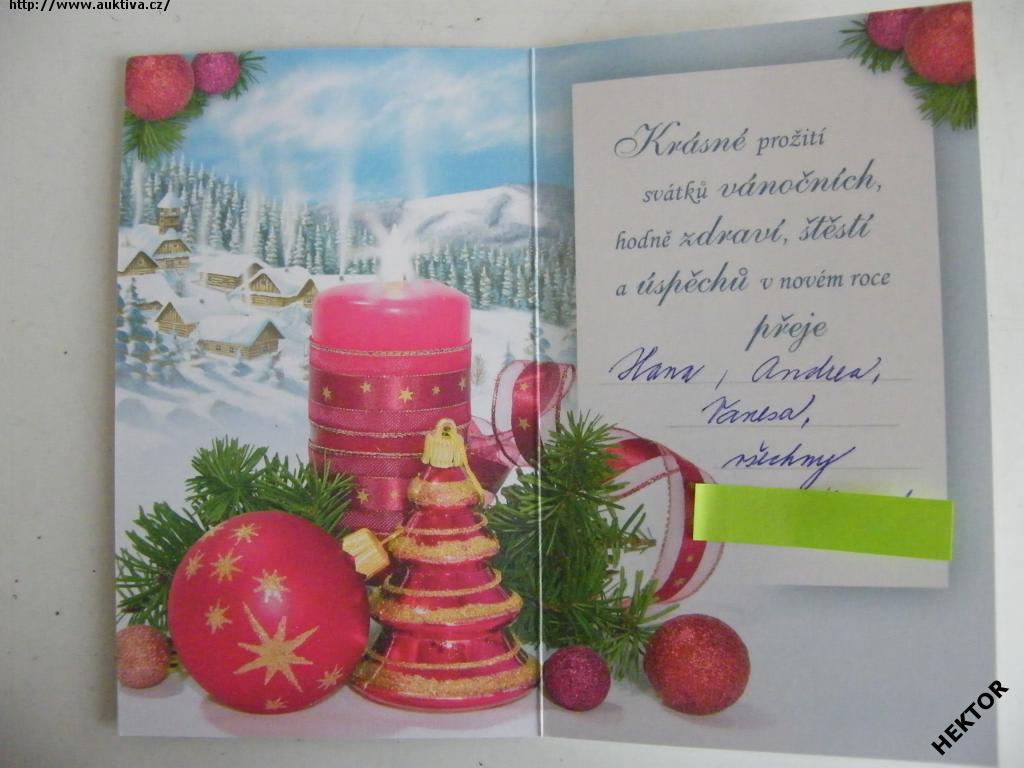 http://www.auktiva.cz/
Krásné prožití
svátků vánočních,
hodně zdraví, štěstí
a úspěchů v novém roce
přeje
Hana, Andrea,
Vanesa,
všechny
HEKTOR